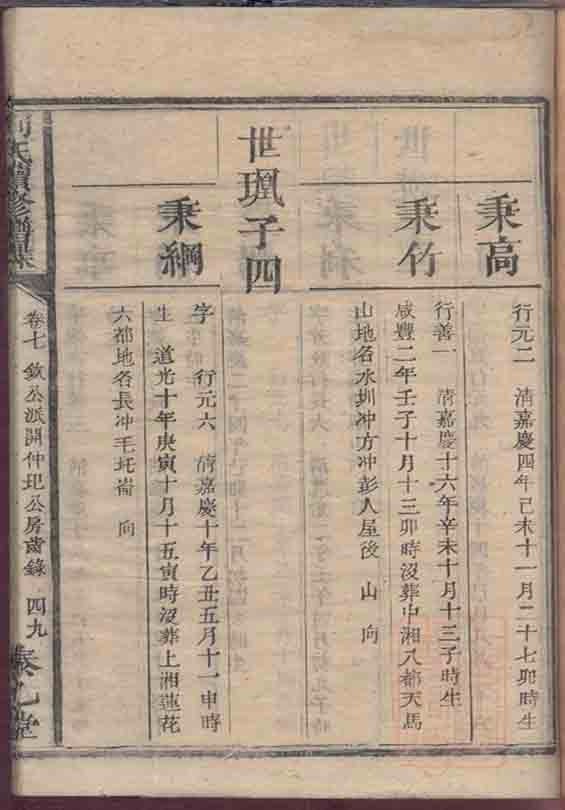 秉高
行元二　清嘉慶四年己未十一月二十七卯時生
秉竹
行善一　清嘉慶十六年辛未十月十三子時生
咸豐二年壬子十月十三卯時沒葬中湘八都天馬
山地名水圳冲方冲彭人屋後　山　向
世珟子四
秉綱
字　行元六　清嘉慶十年乙丑五月十一申時
生　道光十年庚寅十月十五寅時沒葬上湘蓮花
六都地名長冲毛圫崙　向
氏續修譜
卷七　欽公派開仲玘公房齒錄　四九
堂